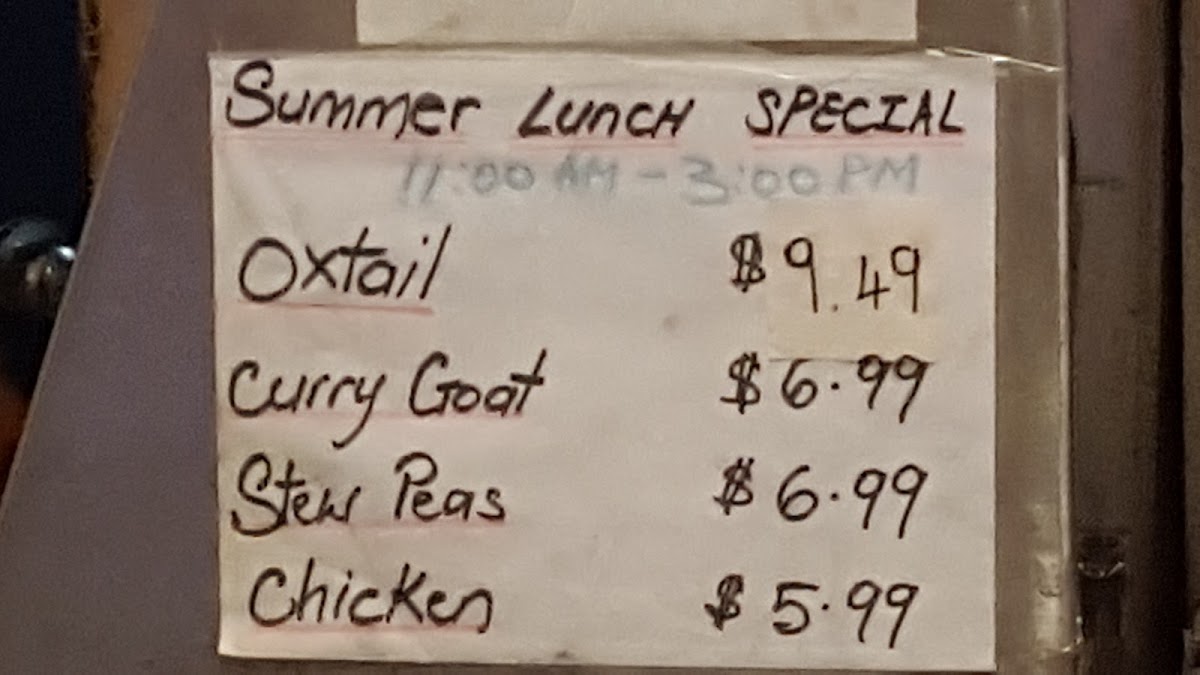 Summer LUNCH SPECIAL
11:00 AM - 3:00 PM
Oxtail $9.49
Curry Goat $6.99
Stew Peas $6.99
Chicken $5.99